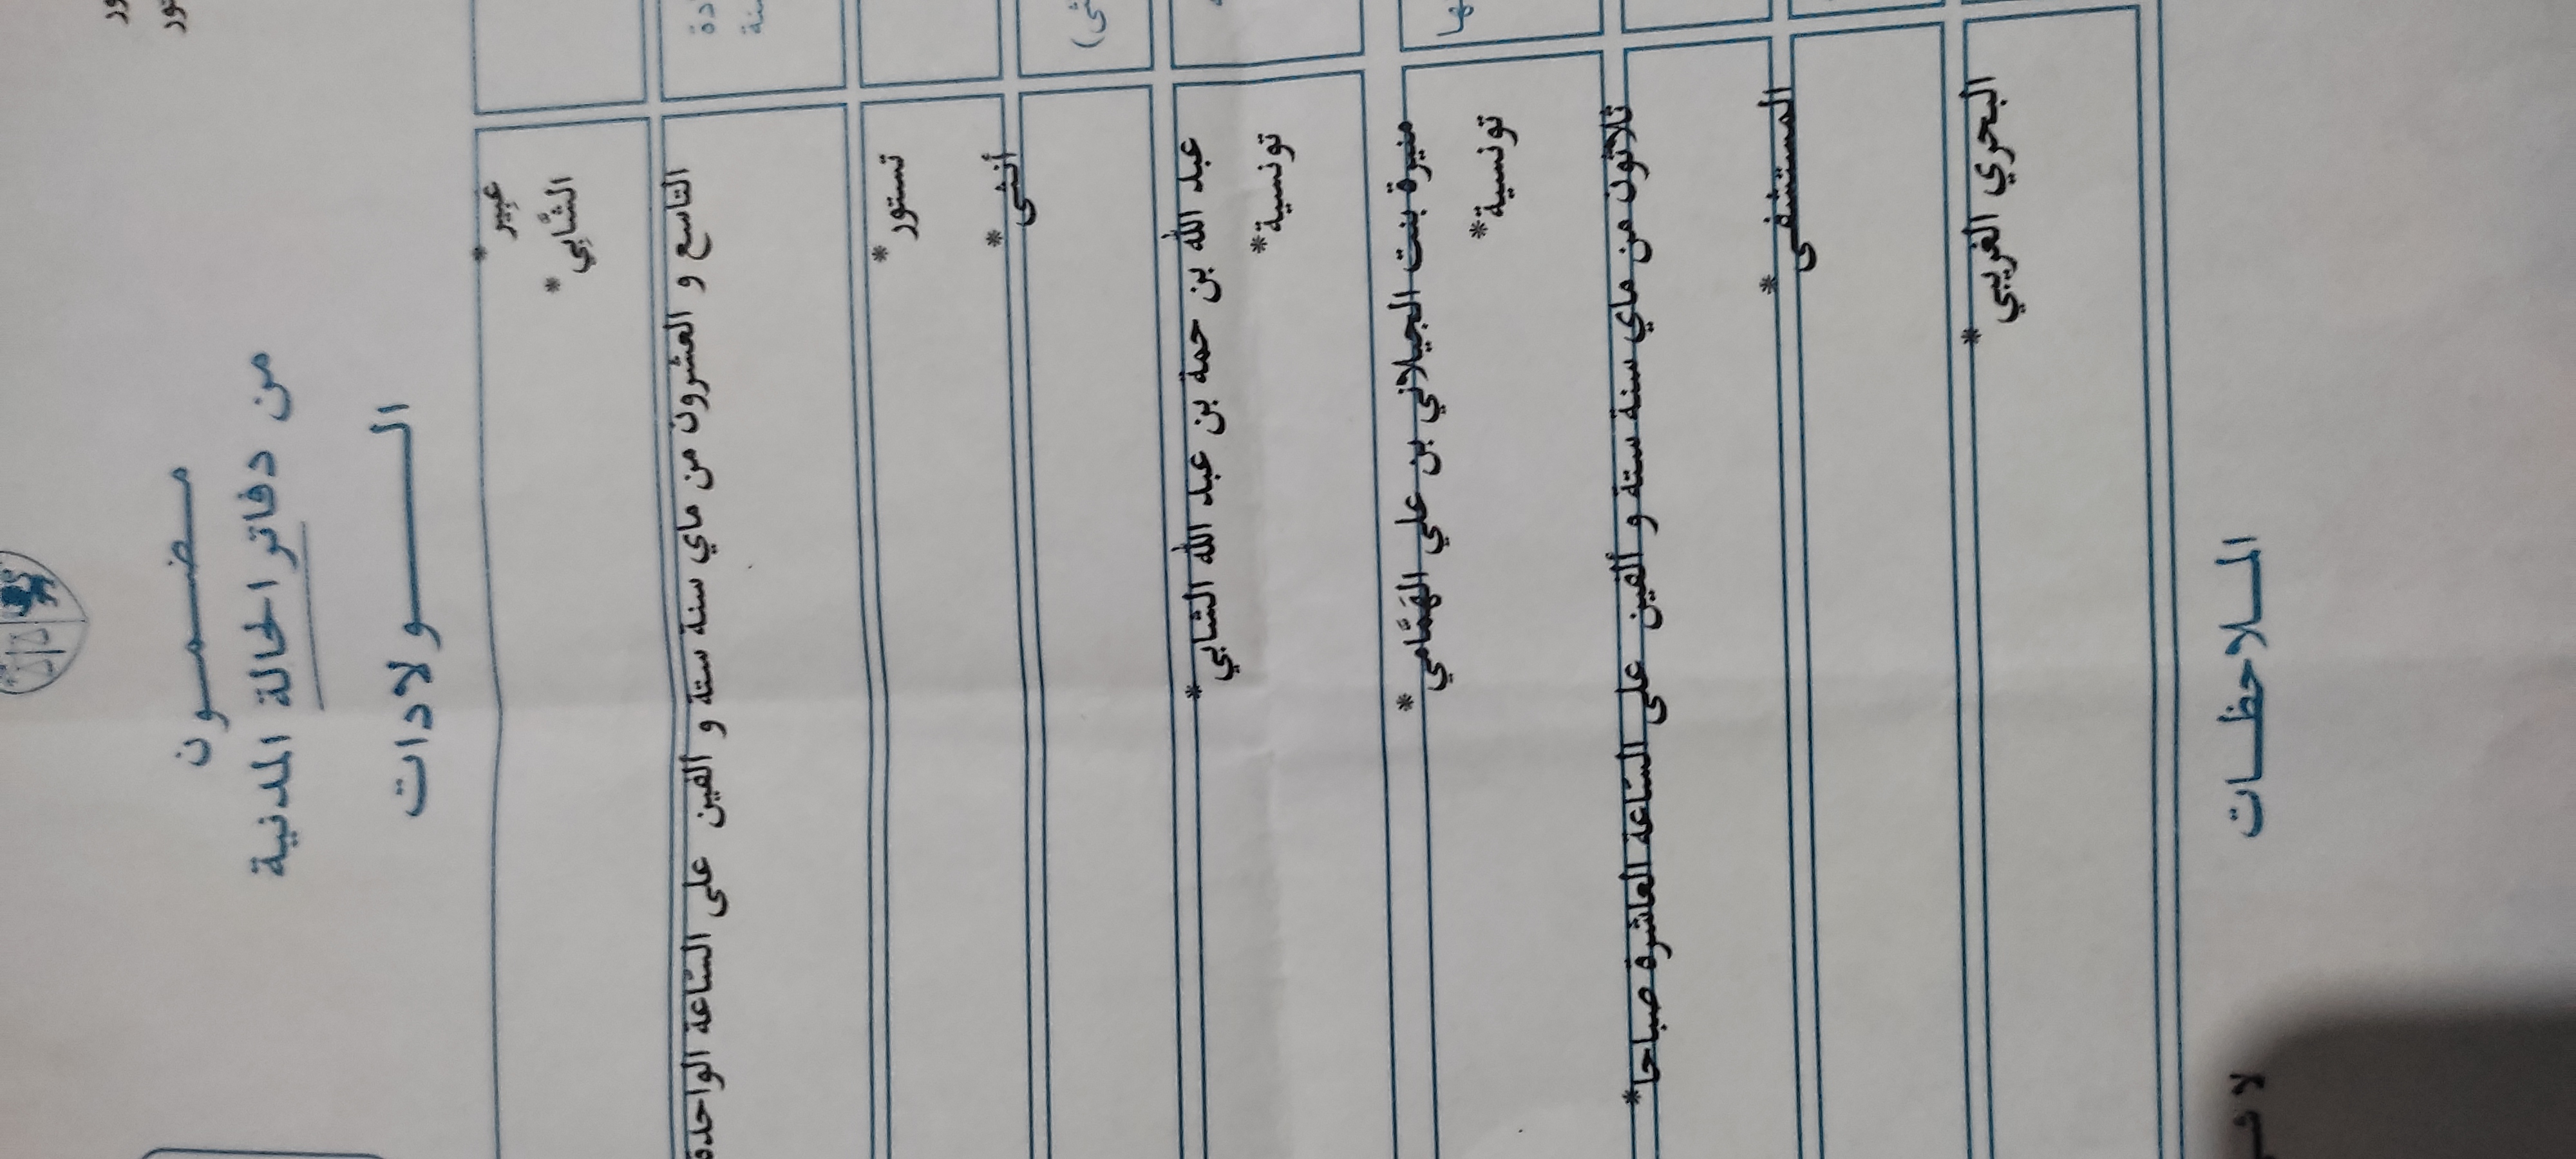 مضمون
من دفاتر الحالة المدنية
الولادات
عبير *
الشّابي *
التاسع و العشرون من ماي سنة ستة و الفين على السّاعة الواحدة
تستور *
أنثى *
عبد الله بن حمة بن عبد الله الشابي *
تونسية *
منيرة بنت الجيلاني بن علي الهَمَّامي *
تونسية *
ثلاثون من ماي سنة ستة و ألفين على السّاعة العاشرة صباحا *
المستشفى *
البحري الغريبي *
الملاحظات